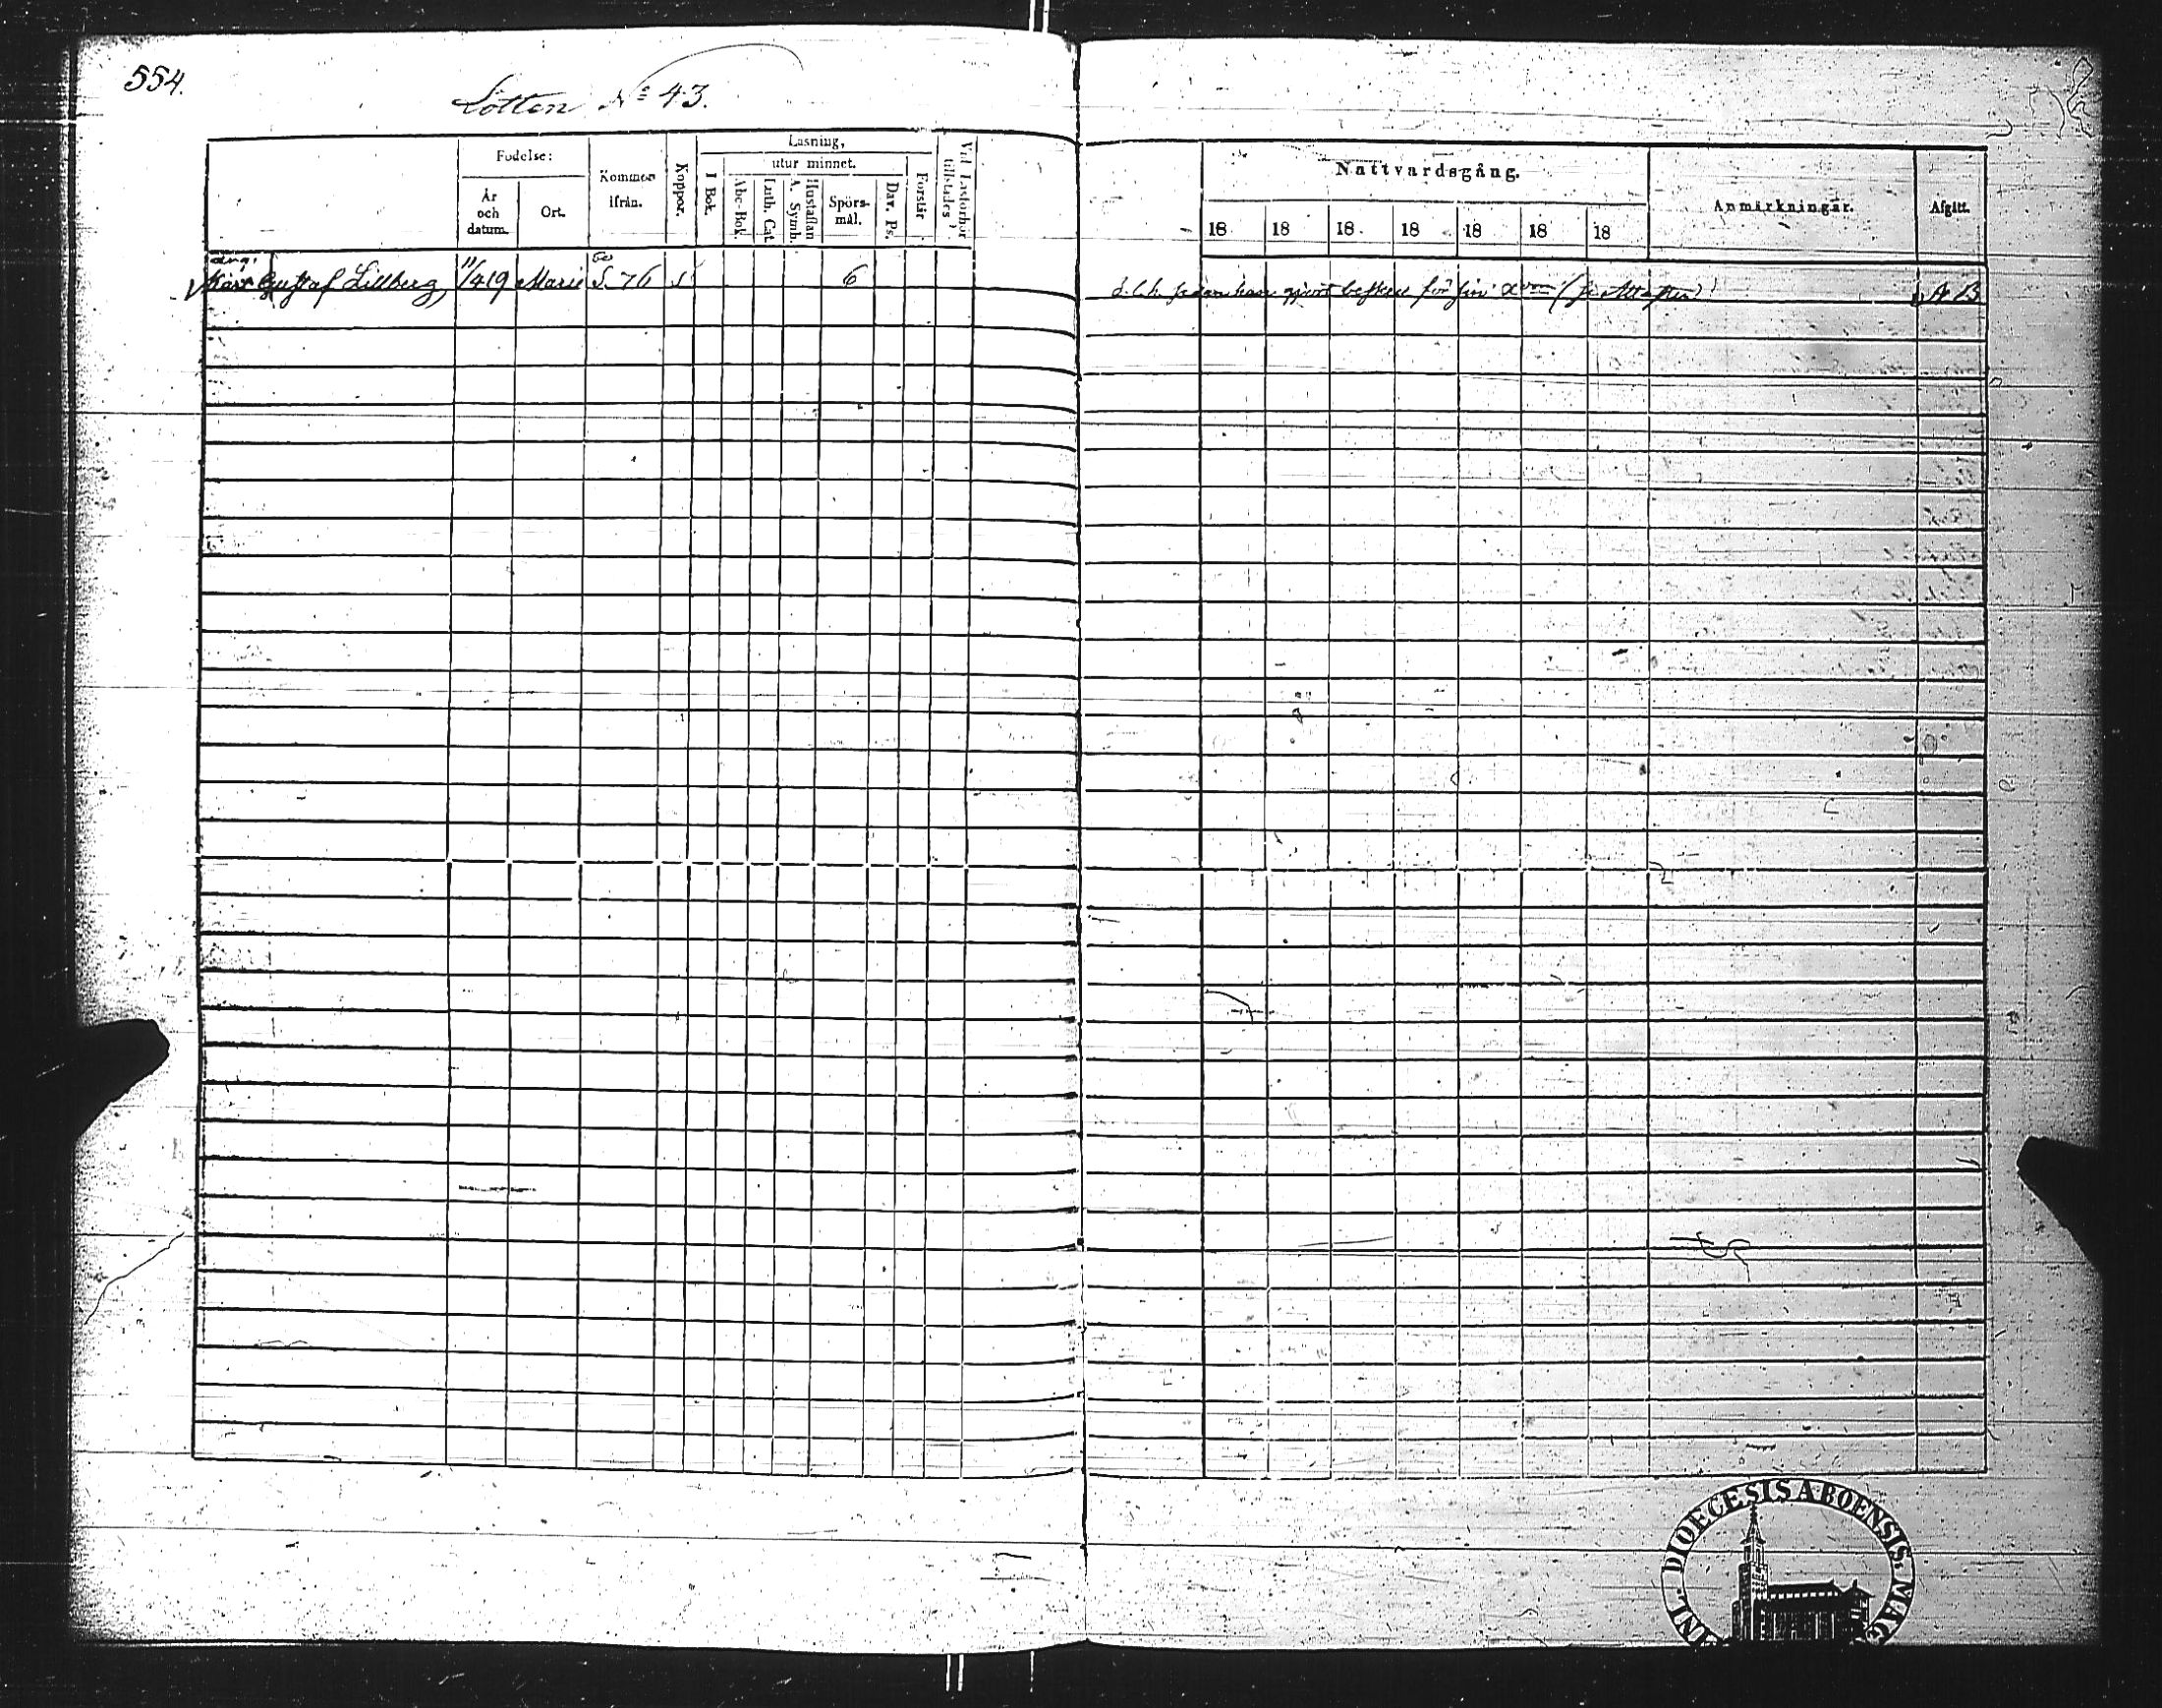 554.
Lotten № 43.
Födelse:
År och datum.
Ort.
Kommen ifrån.
Koppor.
Läsning,
I Bok.
utur minnet.
Abc-Bok.
Luth. Cat.
Hustaflan A. Symb.
Spörsmål.
Dav. Ps.
Förstår.
Vid Läsförhör tillstädes
Nattvardsgång.
18 18 18 18 18 18 18
Anmärkningar.
Afgått.
Gustaf Lillberg, 11/4 19 Marie S. 76 6
sedan han gjort besked för sin A B
DIOECESIS ABOENSIS